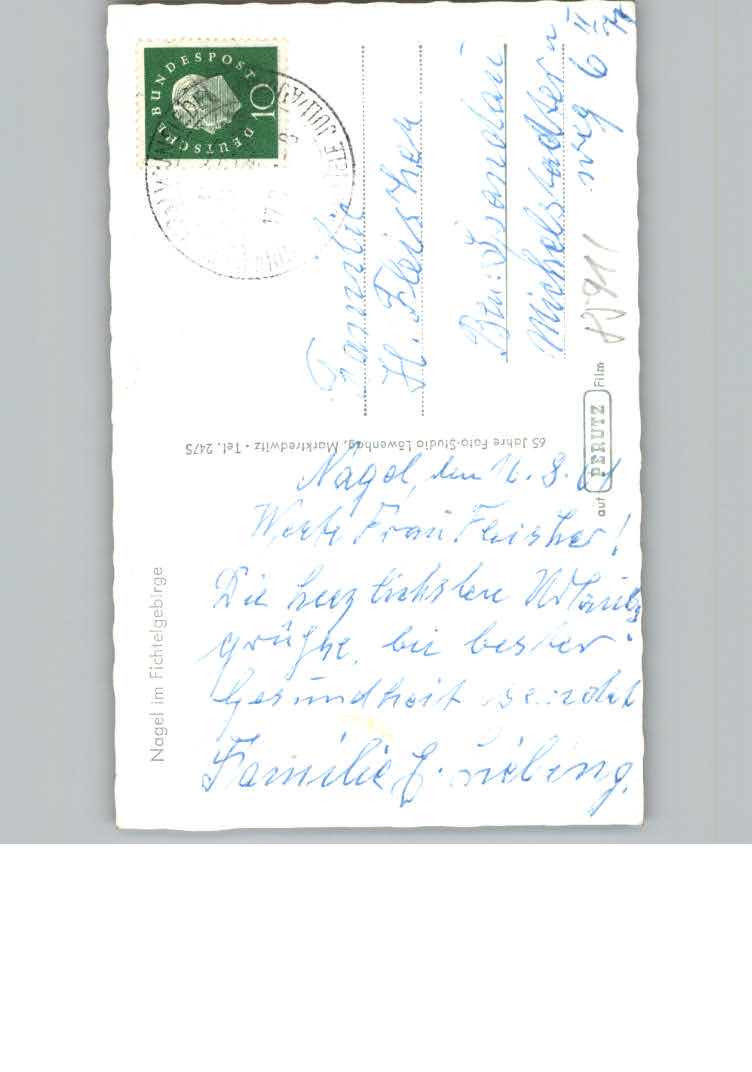 Nagel im Fichtelgebirge
Nagel, den 16.8.61
Werte Frau Fleischer!
Die herzlichsten Urlaubs
grüße, bei bester
Gesundheit sendet
Familie E. Liebing.
65 Jahre Foto-Studio Löwenhag, Marktredwitz • Tel. 2475
auf PERUTZ Film
DEUTSCHE BUNDESPOST
10
Familie
H. Fleischer
Bln: Spandau
Michelstadter
weg 6 II